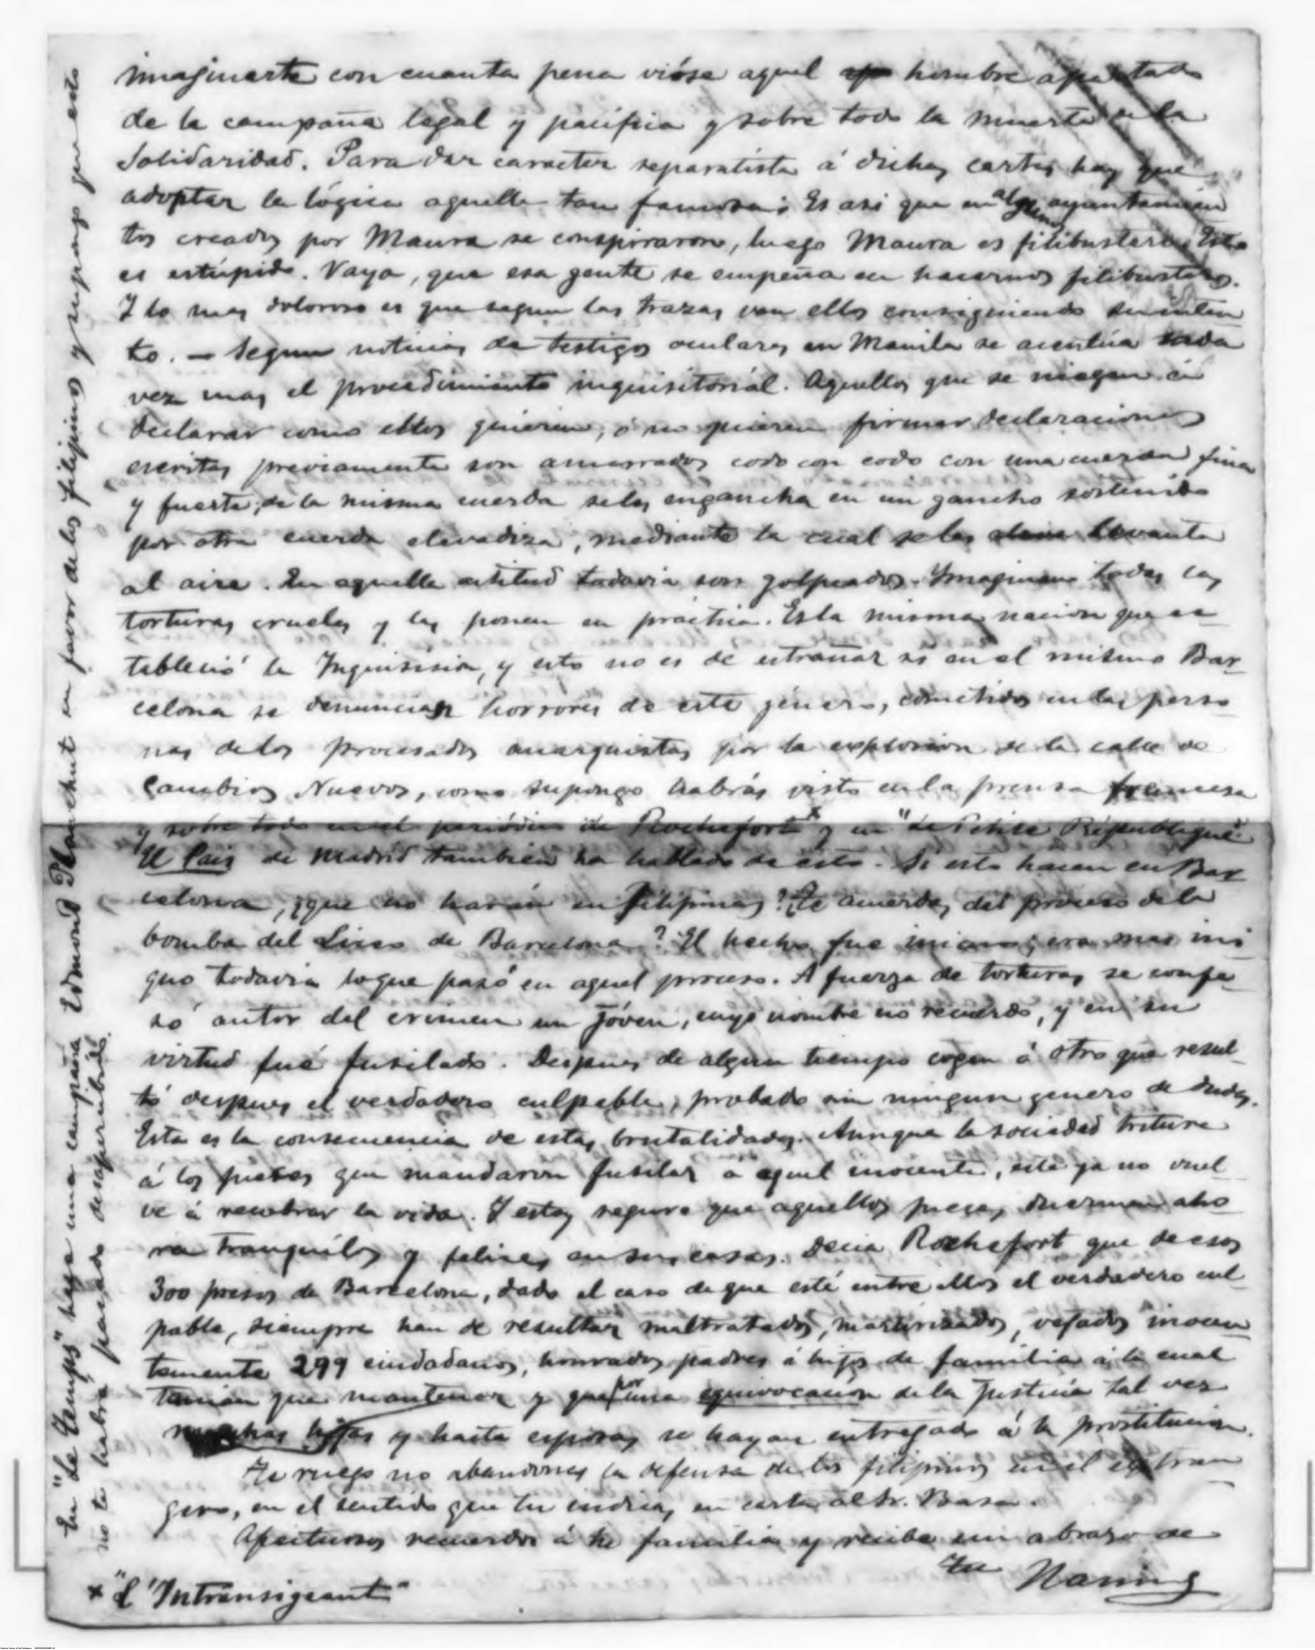 imaginarte con cuanta pena vióse aquel hombre apartado
de la campaña legal y pacifica y sobre todo la muerte de la
Solidaridad. Para dar caracter separatista á dichas cartas hay que
adoptar la lógica aquella tan famosa: Es asi que en algunos ayuntamien
tos creados por Maura se conspiraron, luego Maura es filibustero. Esto
es estúpido. Vaya, que esa gente se empeña en hacernos filibusteros.
Y lo mas doloroso es que segun las trazas van ellos consiguiendo su inten
to. — Segun noticias de testigos oculares en Manila se acentúa cada
vez mas el procedimiento inquisitorial. Aquellos que se niegan á
declarar como ellos quieren, ó no quieren firmar declaraciones
escritas previamente son amarrados codo con codo con una cuerda fina
y fuerte; de la misma cuerda se les engancha en un gancho sostenido
por otra cuerda elevadiza, mediante la cual se les levanta
al aire. En aquella actitud todavia son golpeados. Imaginan todas las
torturas crueles y las ponen en práctica. Es la misma nacion que es-
tableció la Inquisicion, y esto no es de estrañar si en el mismo Bar-
celona se denuncian horrores de este género, cometidos en las perso-
nas de los procesados anarquistas por la explosion de la calle de
Cambios Nuevos, como supongo habrás visto en la prensa francesa
y sobre todo en el periódico de Rochefort x y en "La Petite République".
El Pais de Madrid tambien ha hablado de esto. Si esto hacen en Bar-
celona, ¿que no harán en Filipinas? ¿Te acuerdas del proceso de la
bomba del Liceo de Barcelona? El hecho fue inicuo; era mas ini
quo todavia lo que pasó en aquel proceso. A fuerza de torturas se confe-
só autor del crimen un jóven, cuyo nombre no recuerdo, y en su
virtud fué fusilado. Despues de algun tiempo cogen á otro que resul-
tó despues el verdadero culpable, probado sin ningun genero de dudas.
Esta es la consecuencia de estas brutalidades. Aunque la sociedad triture
á los jueces que mandaron fusilar a aquel inocente, este ya no vuel-
ve á recobrar la vida. Y estoy seguro que aquellos jueces duermen aho-
ra tranquilos y felices en sus casas. Decia Rochefort que de esos
300 presos de Barcelona, dado el caso de que esté entre ellos el verdadero cul-
pable, siempre han de resultar maltratados, martirizados, vejados inocen
temente 299 ciudadanos, honrados padres á hijos de familia á la cual
tenian que mantener y que por una equivocacion de la Justicia tal vez
muchas hijas y hasta esposas se hayan entregado á la prostitucion.
Te ruego no abandones la defensa de los filipinos en el extran
gero, en el sentido que tu indicas, en carta al Sr. Basa.
Afectuosos recuerdos á tu familia y recibe un abrazo de
tu Naning
x "L'Intransigeant"
En "Le Temps" hace una campaña Edmond Planchut en favor de los filipinos y supongo que esto
no te habrá pasado desapercibido.